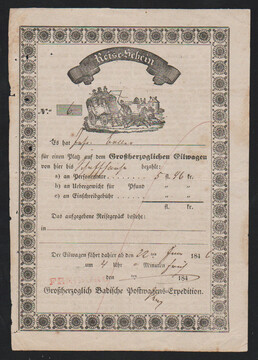 Reise-Schein
Nro. 6
Es hat
für einen Platz auf dem Großherzoglichen Eilwagen
von hier bis Schaffhausen bezahlt:
a) an Personentaxe 5 fl. 26 kr.
b) an Uebergewicht für Pfund
c) an Einschreibgebühr
fl. kr.
Das aufgegebene Reisegepäck besteht:
in
Der Eilwagen fährt dahier ab den 22 Juni 184
um 4 Uhr Minuten früh
den 184
Großherzoglich Badische Postwagens-Expedition.